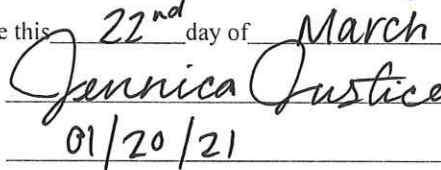 e this 22nd day of March
Jennica Justice
01/20/21